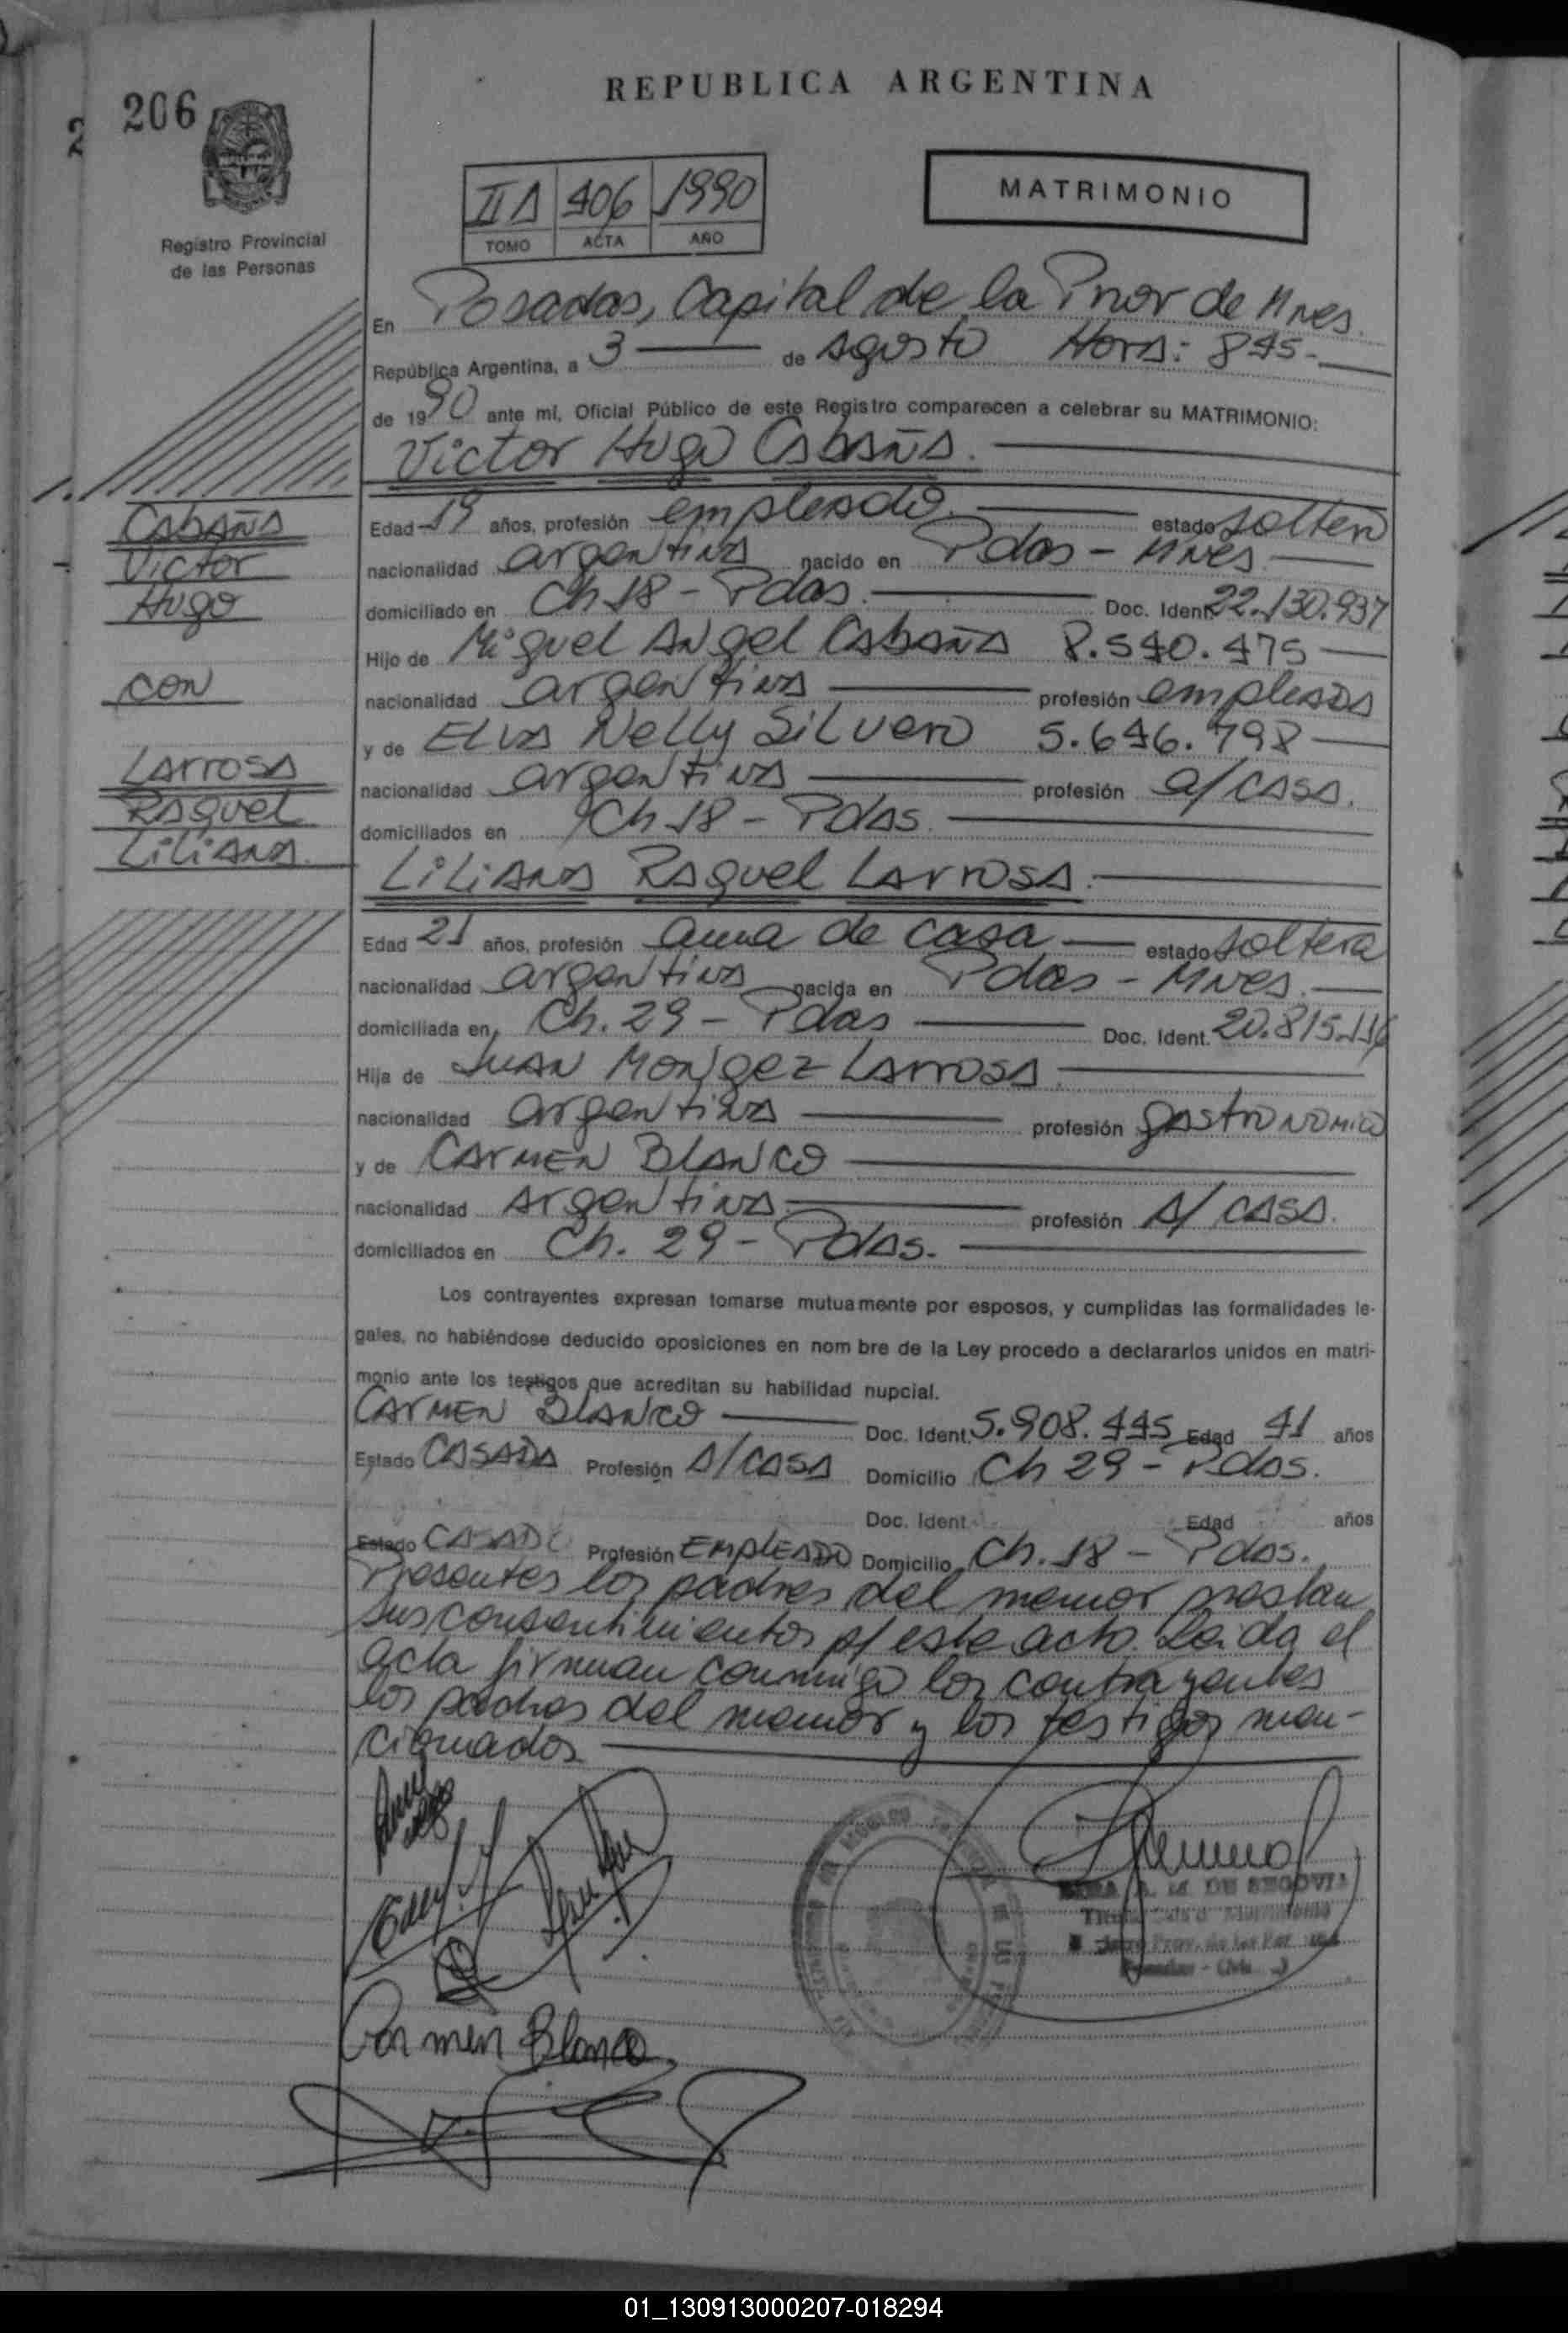 REPUBLICA ARGENTINA
206
MATRIMONIO
II A 406 1990
TOMO ACTA AÑO
Registro Provincial
de las Personas
En Posadas, Capital de la Prov de Mnes.
República Argentina, a 3 de Agosto Hora: 845.-
de 1990 ante mí, Oficial Público de este Registro comparecen a celebrar su MATRIMONIO:
Victor Hugo Cabaña.
Cabaña
Victor
Hugo
con
Larrosa
Raquel
Liliana.
Edad 19 años, profesión empleado. estado soltero
nacionalidad argentina nacido en Pdas - Mnes.
domiciliado en Ch 18 - Pdas. Doc. Ident. 22.130.937
Hijo de Miguel Angel Cabaña 8.540.475
nacionalidad argentina profesión empleado
y de Elva Nelly Silvero 5.646.798
nacionalidad argentina profesión a/casa.
domiciliados en Ch 18 - Pdas.
Liliana Raquel Larrosa.
Edad 21 años, profesión ama de casa estado soltera
nacionalidad argentina nacida en Pdas - Mnes.
domiciliada en Ch. 29 - Pdas Doc. Ident. 20.815.116
Hija de Juan Mongez Larrosa.
nacionalidad argentina profesión gastronomico
y de Carmen Blanco
nacionalidad Argentina. profesión A/ casa.
domiciliados en Ch. 29 - Pdas.
Los contrayentes expresan tomarse mutuamente por esposos, y cumplidas las formalidades le-
gales, no habiéndose deducido oposiciones en nom bre de la Ley procedo a declararlos unidos en matri-
monio ante los testigos que acreditan su habilidad nupcial.
Carmen Blanco Doc. Ident. 5.908.445 Edad 41 años
Estado casada Profesión A/casa Domicilio Ch 29 - Pdas.
Doc. Ident. Edad años
Estado casado Profesión Empleado Domicilio Ch. 18 - Pdas.
Presentes los padres del menor prestan
sus consentimientos p/ este acto. Leida el
acta firman conmigo los contrayentes
los padres del menor y los testigos men-
cionados
A. M. DE SEGOVIA
Carmen Blanco
01_130913000207-018294